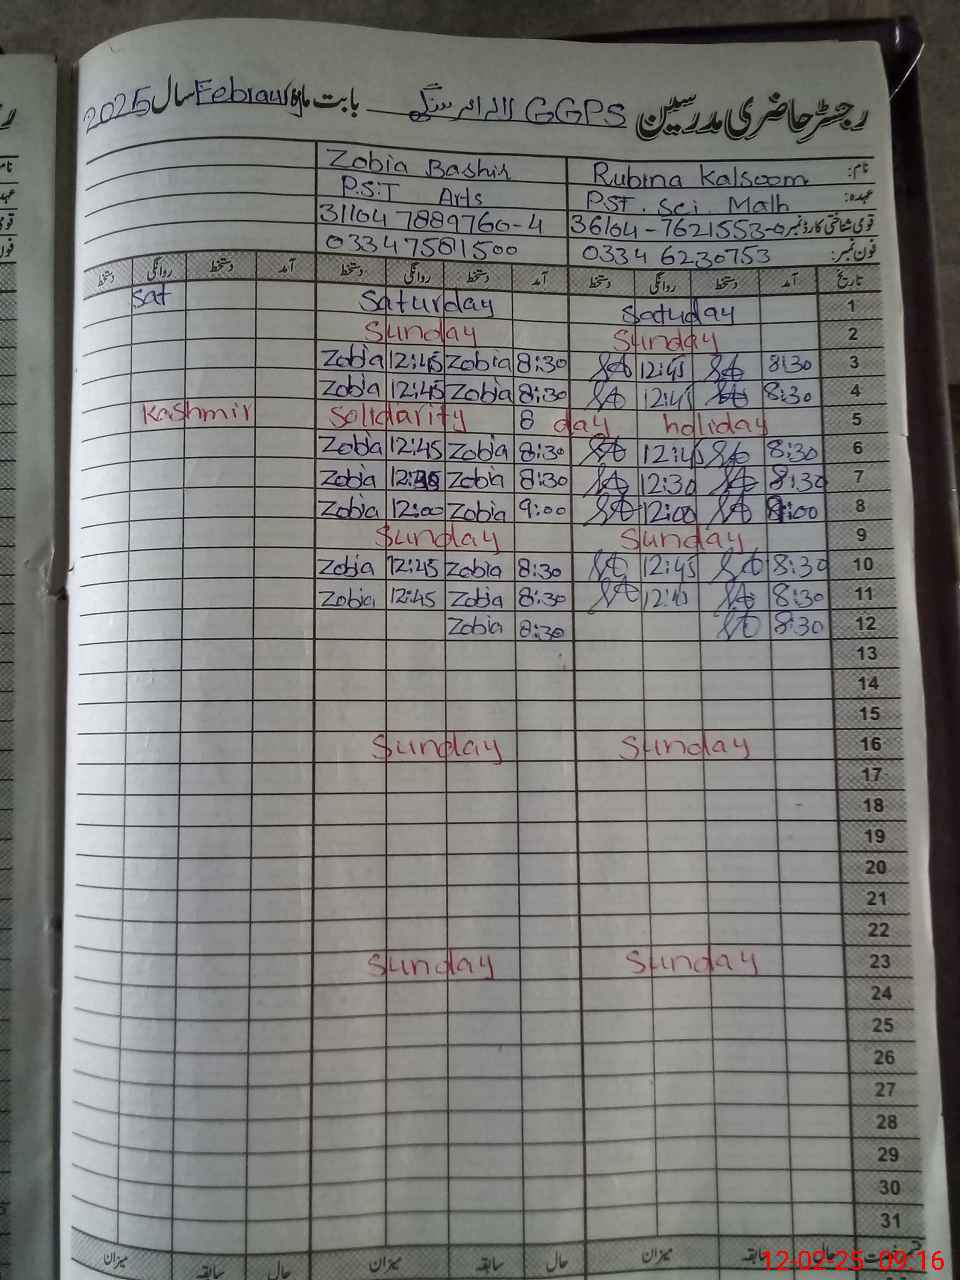 رجسٹر حاضری مدرسین GGPS بابت ماہ Februay سال 2025
نام: Rubina Kalsoom Zobia Bashir
عہدہ: PST. Sci. Math P.S.T Arts
قومی شناختی کارڈ نمبر 36104-7621553-0 31104 7889760-4
فون نمبر: 0334 6230753 03347561500
تاریخ آمد دستخط روانگی دستخط آمد دستخط روانگی دستخط آمد دستخط روانگی دستخط
1 Satuday Saturday Sat
2 Sunday Sunday
3 8:30 12:45 8:30 Zobia 12:45 Zobia
4 8:30 12:45 8:30 Zobia 12:45 Zobia
5 Kashmir Solidarity 8 day holiday
6 8:30 12:45 8:30 Zobia 12:45 Zobia
7 8:30 12:30 8:30 Zobia Zobia
8 9:00 12:00 9:00 Zobia 12:00 Zobia
9 Sunday Sunday
10 8:30 12:45 8:30 Zobia 12:45 Zobia
11 8:30 12:45 8:30 Zobia 12:45 Zobia
12 8:30 8:30 Zobia
13
14
15
16 Sunday Sunday
17
18
19
20
21
22
23 Sunday Sunday
24
25
26
27
28
29
30
31
حال سابقہ میزان حال سابقہ میزان حال سابقہ میزان
12-02-25 09:16